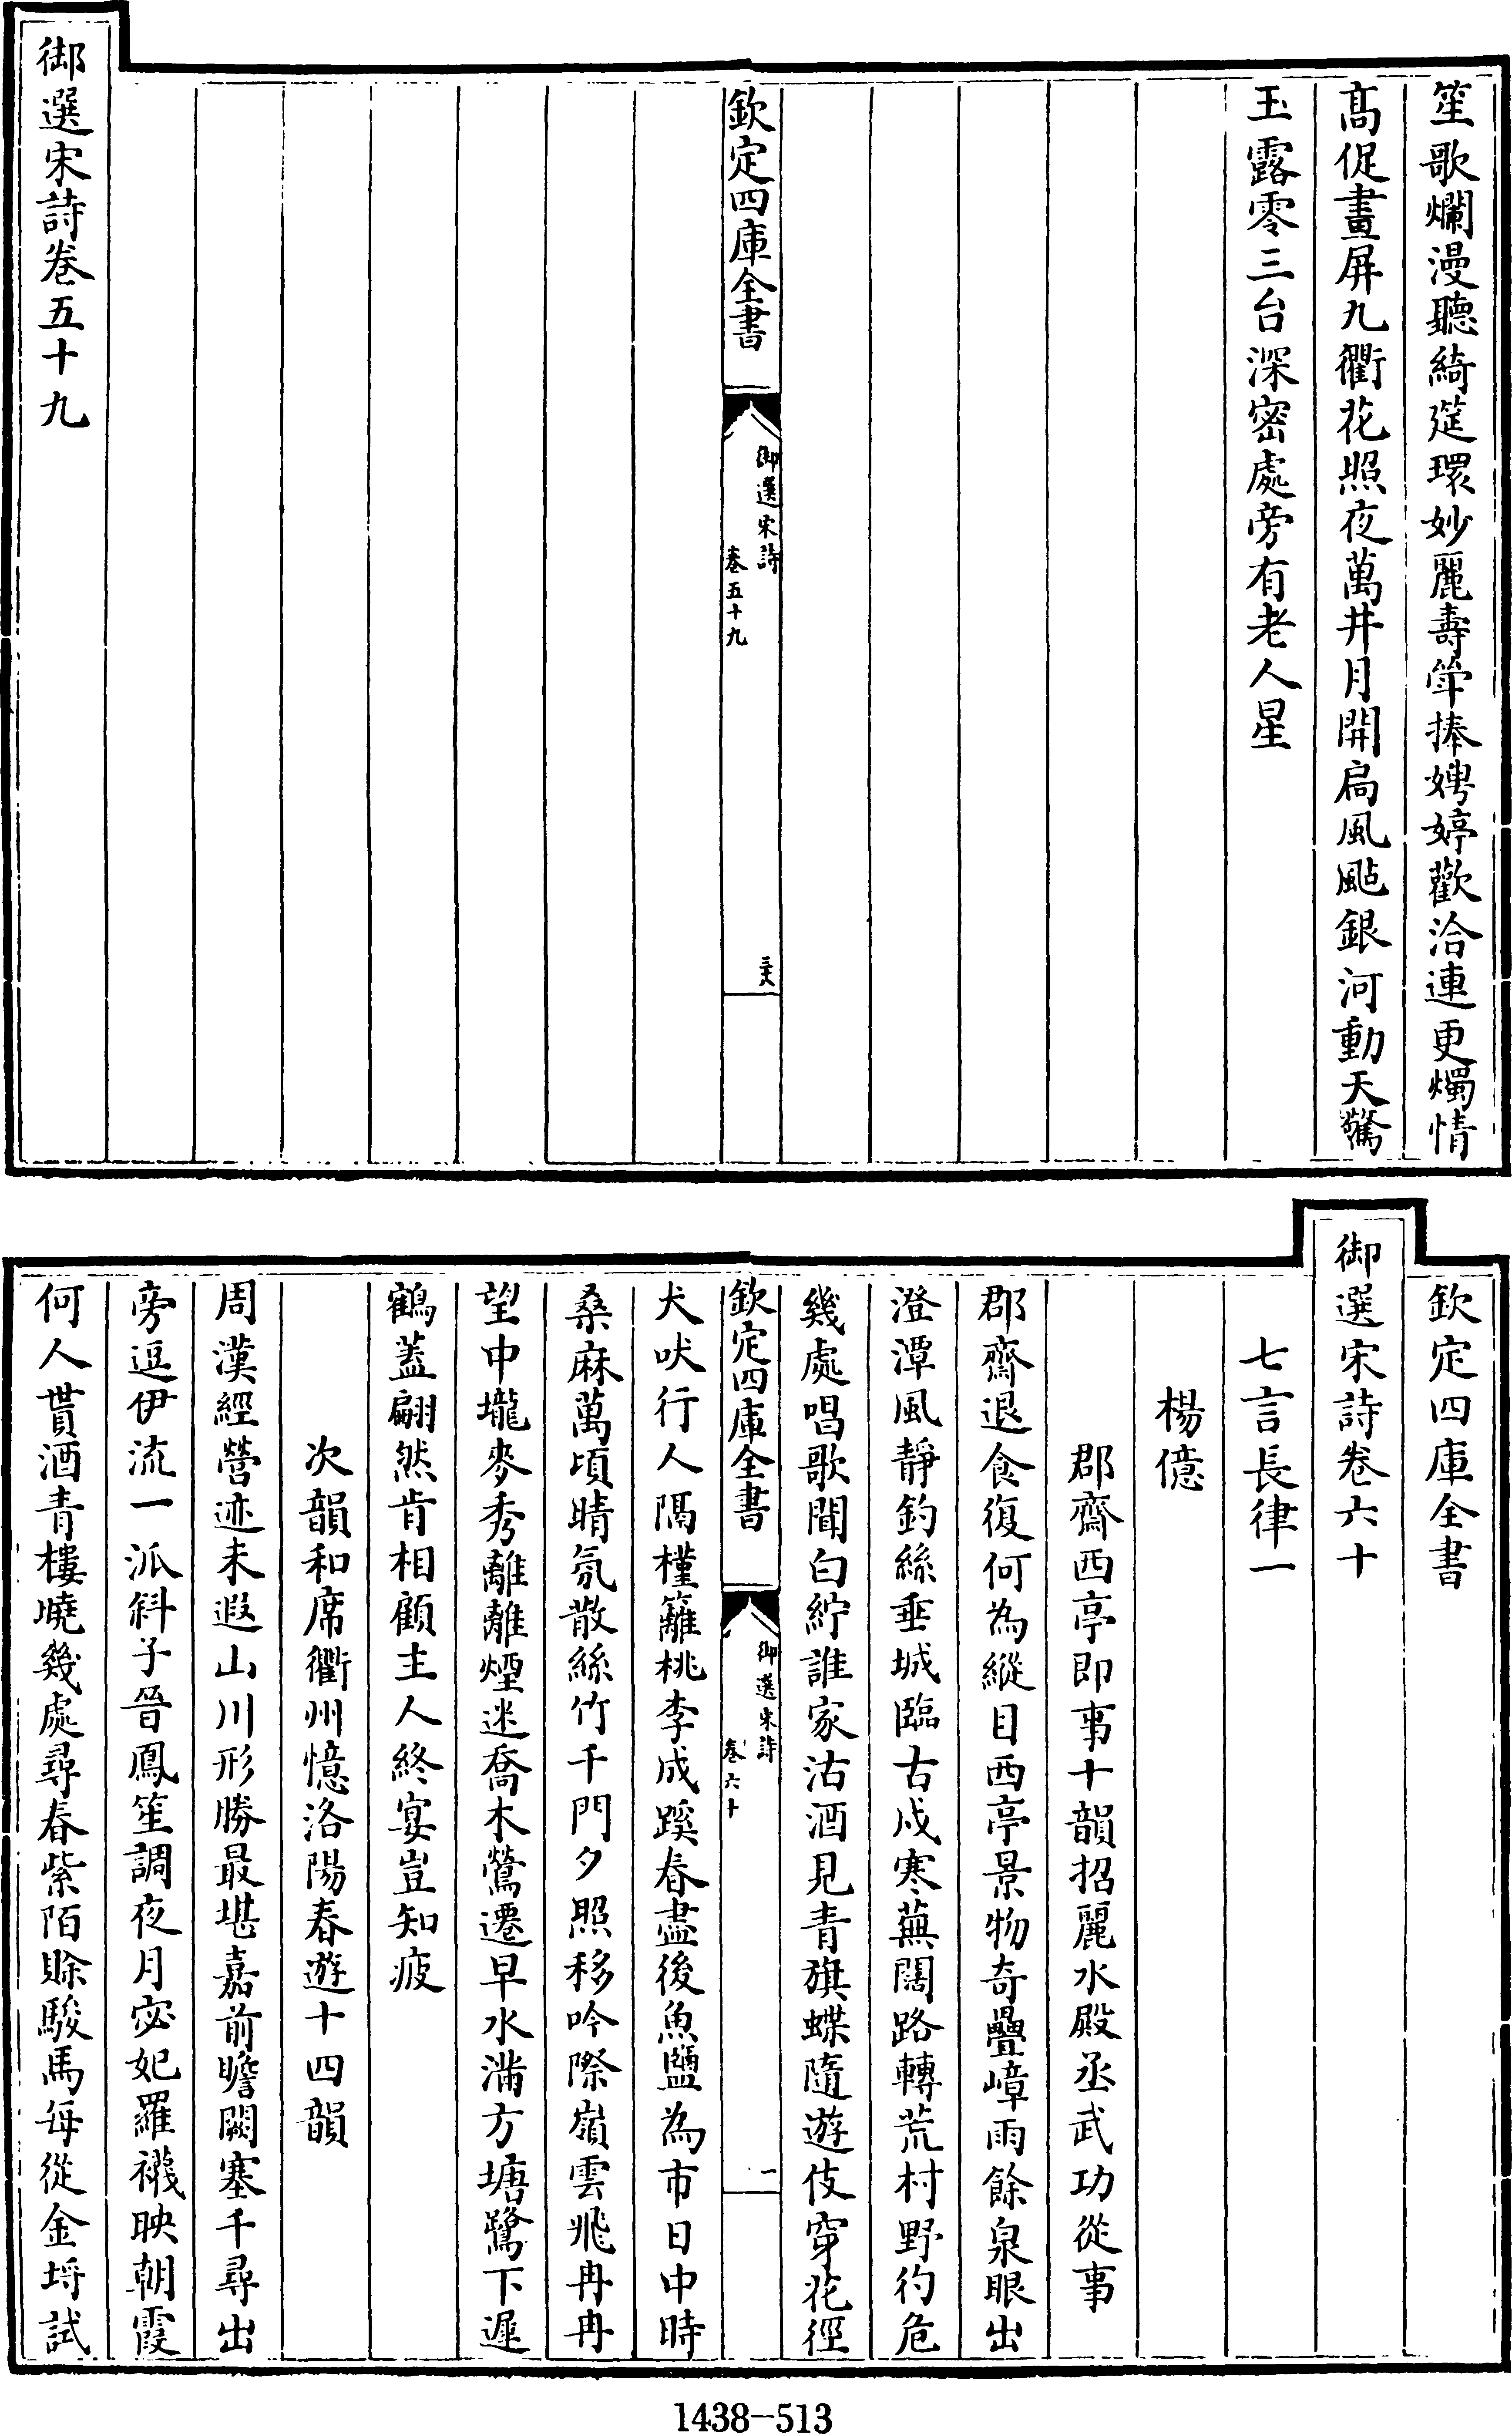 笙歌爛漫聽綺筵環妙麗壽斝捧娉婷歡洽連更燭情
髙促畫屏九衢花照夜萬井月開扃風颭銀河動天驚
玉露零三台深密處旁有老人星
欽定四庫全書
御選宋詩
卷五十九
三十八
御選宋詩卷五十九
欽定四庫全書
御選宋詩卷六十
七言長律一
楊億
郡齋西亭即事十韻招麗水殿丞武功從事
郡齋退食復何為縱目西亭景物奇疊嶂雨餘泉眼出
澄潭風靜釣絲垂城臨古戍寒蕪闊路轉荒村野彴危
幾處唱歌聞白紵誰家沽酒見青旗蝶隨遊伎穿花徑
欽定四庫全書
御選宋詩
卷六十
一
犬吠行人隔槿籬桃李成蹊春盡後魚鹽為市日中時
桑麻萬頃晴氛散絲竹千門夕照移吟際嶺雲飛冉冉
望中壠麥秀離離煙迷喬木鶯遷早水滿方塘鷺下遲
鶴蓋翩然肯相顧主人終宴豈知疲
次韻和席衢州憶洛陽春遊十四韻
周漢經營迹未遐山川形勝最堪嘉前瞻闕塞千尋出
旁逗伊流一派斜子晉鳳笙調夜月宓妃羅襪映朝霞
何人貰酒青樓曉幾處尋春紫陌賒駿馬每從金埒試
1438-513